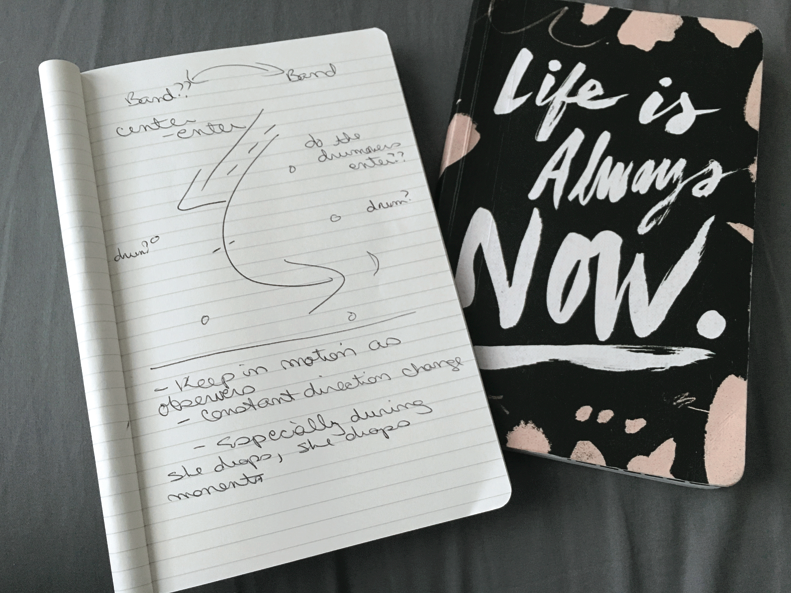 Band?? Band
center
-enter
do the
drummers
enter??
drum?
drum?
- Keep in motion as
observers
- Constant direction change
- Especially during
she drops, she drops
moments
Life is
Always
NOW.